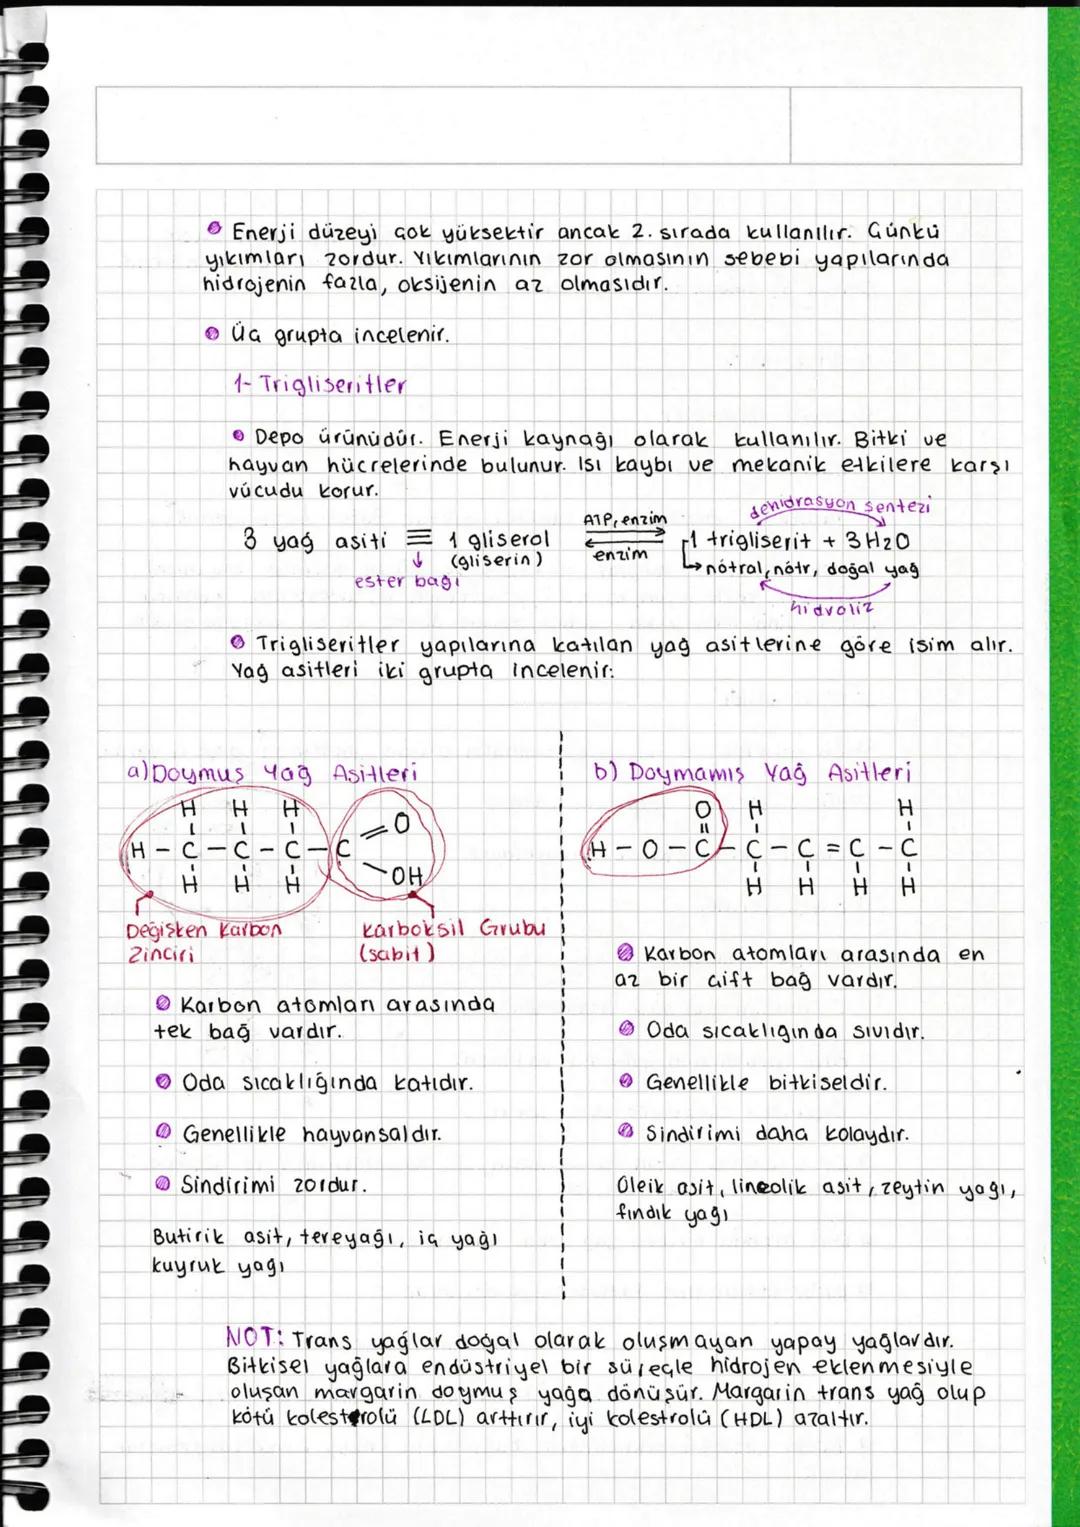 Enerji düzeyi çok yüksektir ancak 2. sırada kullanılır. Çünkü
yıkımları zordur. Yıkımlarının zor olmasının sebebi yapılarında
hidrojenin fazla, oksijenin az olmasıdır.
Üç grupta incelenir.
1- Trigliseritler
Depo ürünüdür. Enerji kaynağı olarak kullanılır. Bitki ve
hayvan hücrelerinde bulunur. Isı kaybı ve mekanik etkilere karşı
vücudu korur.
dehidrasyon sentezi
3 yağ asiti ≡ 1 gliserol ATP, enzim 1 trigliserit + 3H2O
ester bağı (gliserin) enzim nötral, nötr, doğal yağ
hidroliz
Trigliseritler yapılarına katılan yağ asitlerine göre isim alır.
Yağ asitleri iki grupta incelenir:
a) Doymuş Yağ Asitleri
H H H
O
H - C - C - C - C
OH
H H H
Değişken Karbon
Zinciri
Karboksil Grubu
(sabit)
Karbon atomları arasında
tek bağ vardır.
Oda sıcaklığında katıdır.
Genellikle hayvansaldır.
Sindirimi zordur.
Butirik asit, tereyağı, iç yağı
kuyruk yağı
b) Doymamış Yağ Asitleri
O H H
H - O - C - C - C = C - C
H H H H
Karbon atomları arasında en
az bir çift bağ vardır.
Oda sıcaklığında sıvıdır.
Genellikle bitkiseldir.
Sindirimi daha kolaydır.
Oleik asit, lineolik asit, zeytin yağı,
fındık yağı
NOT: Trans yağlar doğal olarak oluşmayan yapay yağlardır.
Bitkisel yağlara endüstriyel bir süreçle hidrojen eklenmesiyle
oluşan margarin doymuş yağa dönüşür. Margarin trans yağ olup
kötü kolesterolü (LDL) arttırır, iyi kolestrolü (HDL) azaltır.